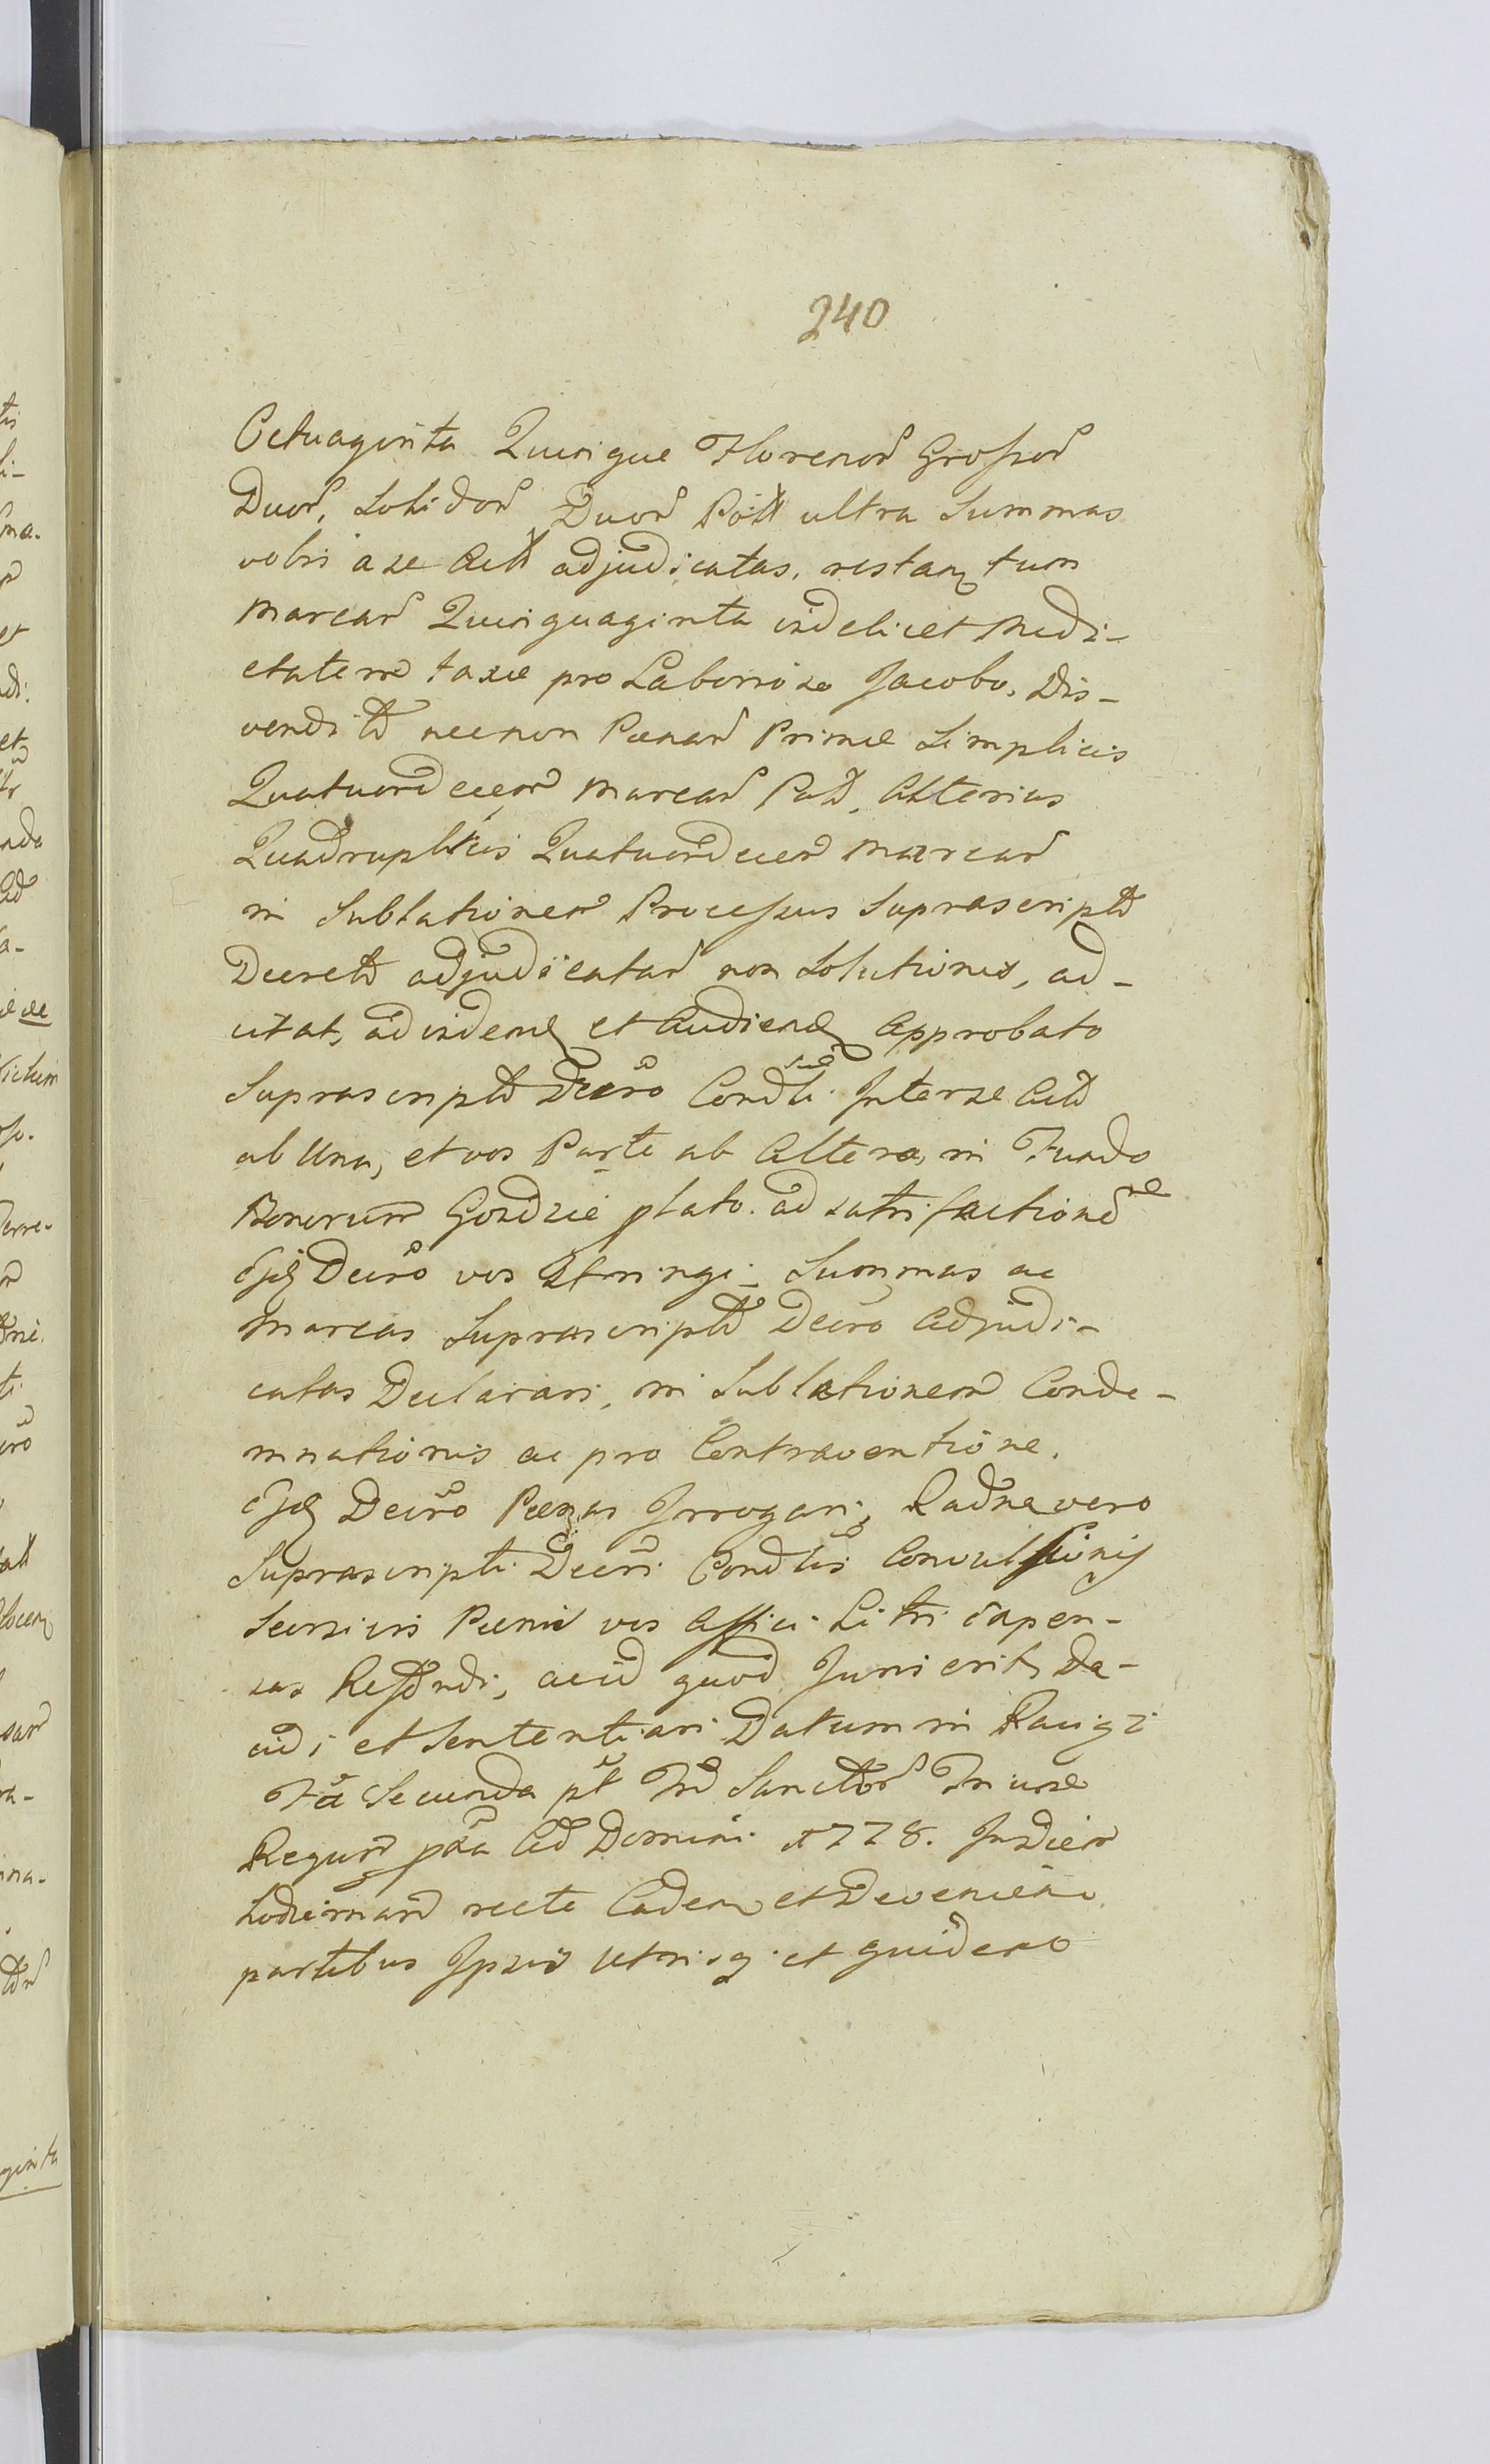 240
Octuaginta Quinque Florenor Grossor
Duor, Solidor Duor Poll ultra Summas
vobis a se Actt adjudicatas, restan tum
Marcar Quinquaginta videlicet Medi-
etatem taxæ pro Laborioso Jacobo, Dis-
vendit necnon Pænar Primæ Simplicis
Quatuordecem Marcar Poll, Alterius
Quadruplicis Quatuordecem Marcar
in Sublationem Processus Suprascript
Decreto adjudicatar non Solutionis, ad-
citat, ad viden et Audien Approbato
Suprascript Decro Condli Inter se Act
ab Una, et vos Parte ab Altera, in Fundo
Bonorum Gozdzie plato ad satisfactione
ejd Decro vos Stringi Summas ac
Marcas Suprascript Decro Adjudi-
catas Declarari, in Sublationem Conde-
mnationis ac pro Contraventione
ejd Decro Pænas Irrogari, Radne vero
Suprascripti Decri Condlis Convulsionis
Sersivis Pænis vos Affici Litis Expen-
sas Refdndi, acid quod Juris erit, De-
cidi et Sententiari Datum in Raugi
Fa Secunda pt Sanctor Trium
Regum pxa Ad Domini 1778. In Diem
hodiernam recte Caden et Devenien
partibus Ipsis Utrisq et quidem